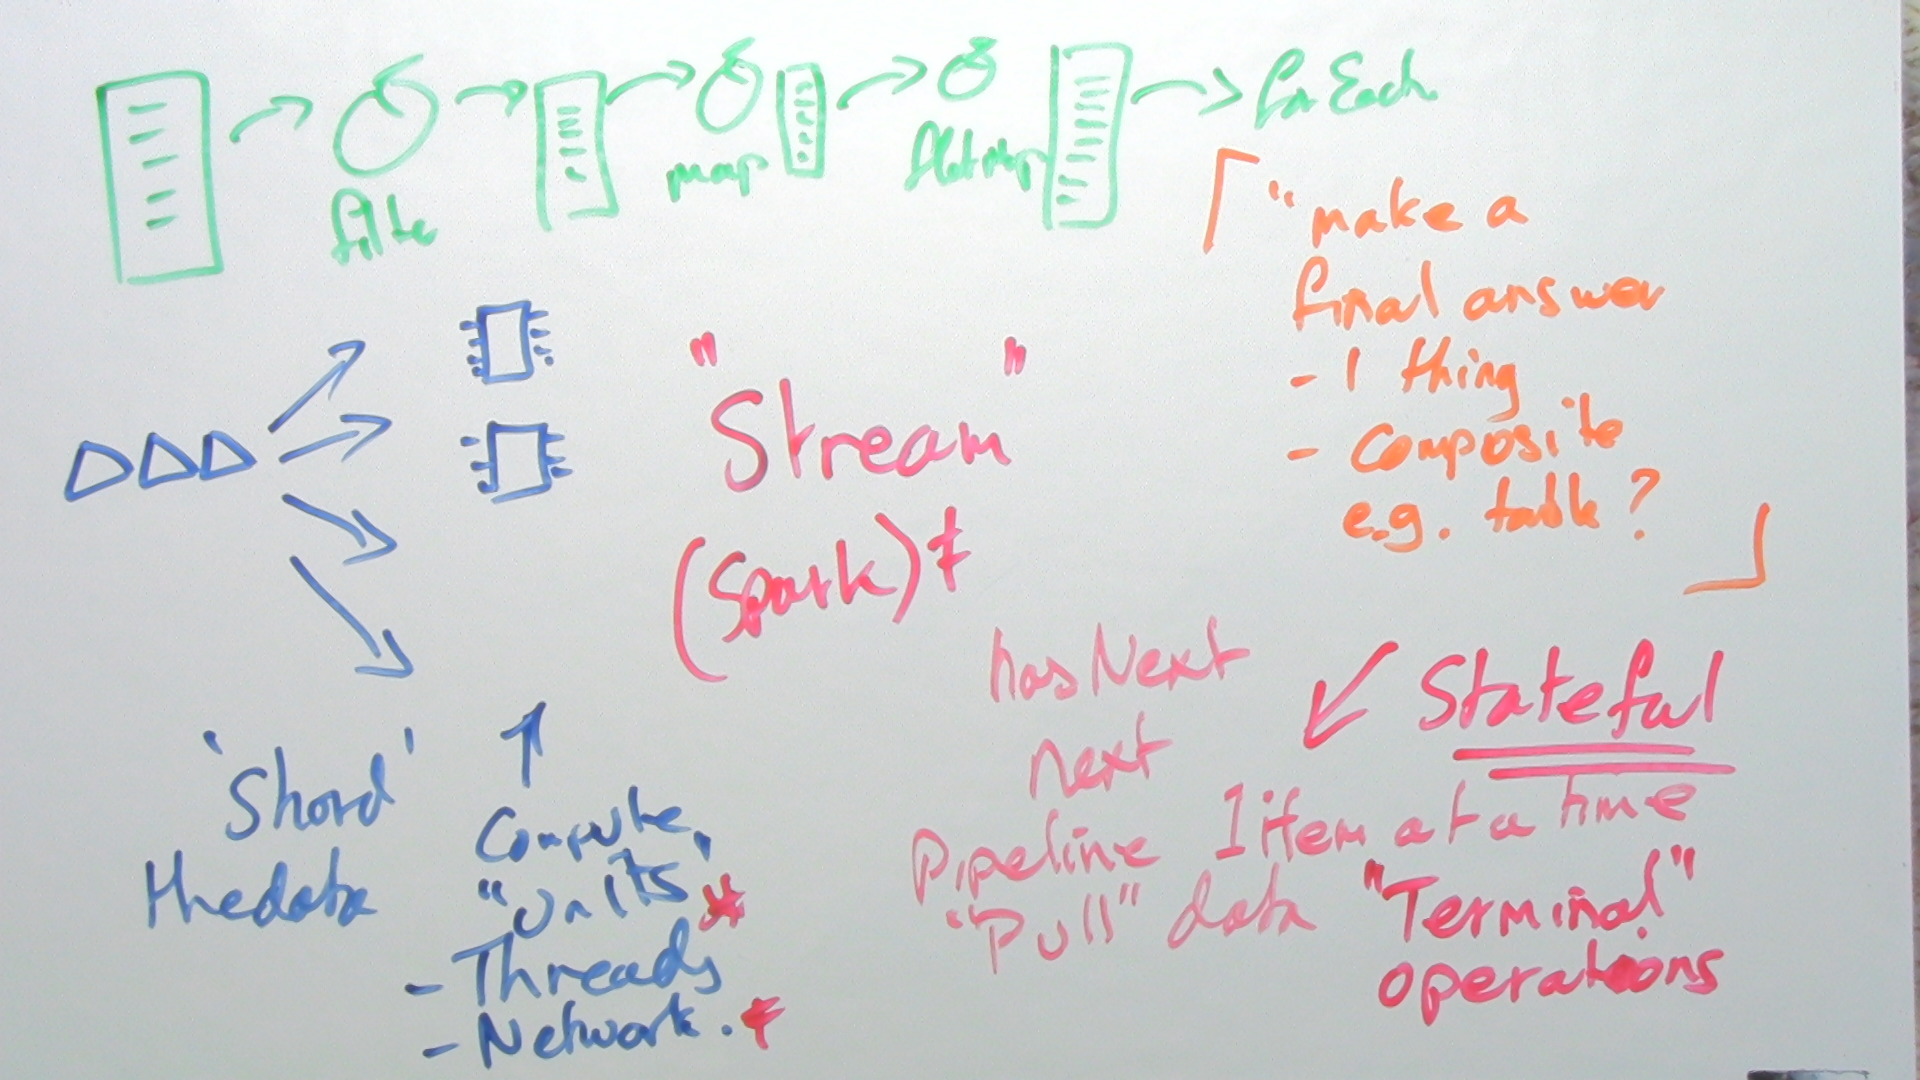 filte
map
flatMap
forEach
"make a
final answer
- 1 thing
- composite
e.g. table?
"Stream"
(Spark) *
'Shard'
the data
Compute
"Units" *
- Threads
- Network. *
hasNext
next
Stateful
Pipeline 1 item at a time
"Pull" data
"Terminal"
operations